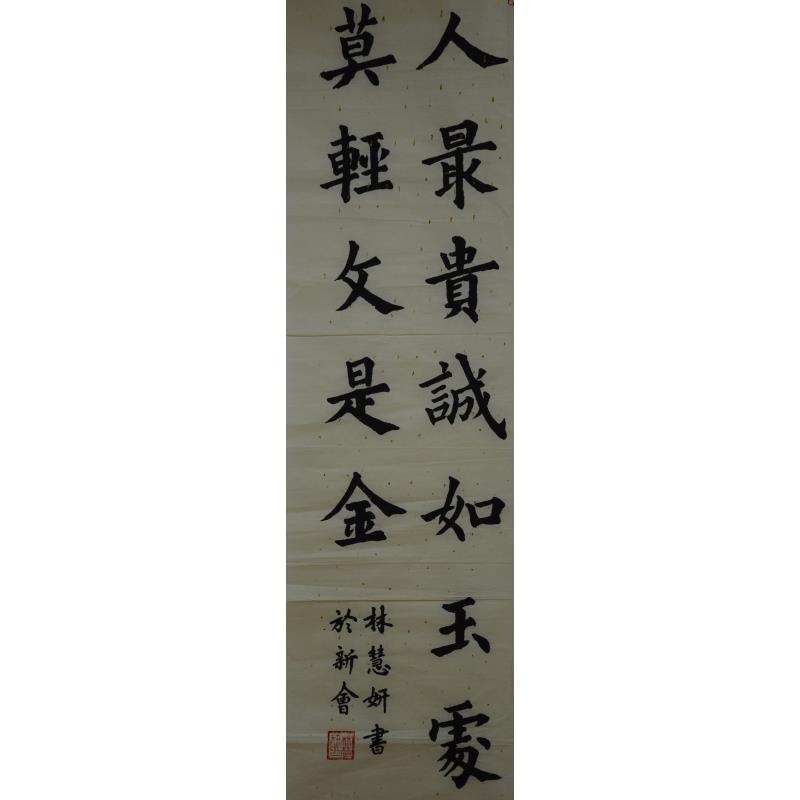 人最貴誠如玉處
莫輕文是金
林慧妍書
於新會